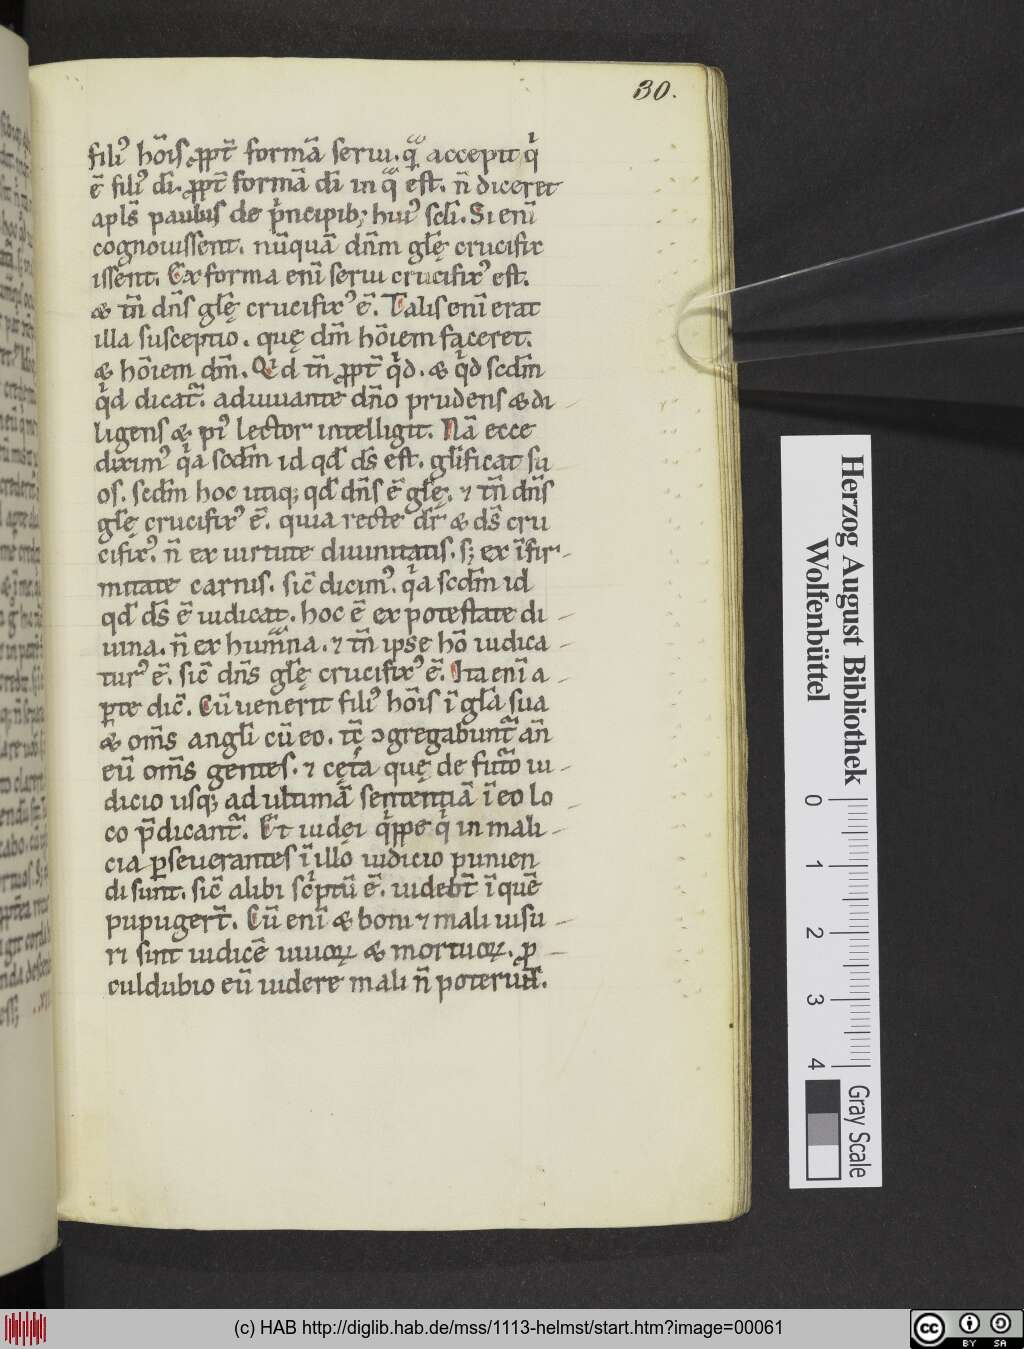 30.
filiꝰ ho̅is ꝓpt̅ forma̅ serui. qͣ accepit qͥ
e̅ filiꝰ di̅. ꝓpt̅ forma̅ di̅ in qͣ est. n̅ diceret
apl̅s paulus de pͥncipib; huiꝰ scl̅i. Si eni̅
cognouissent. nu̅qua̅ dn̅m gl̅ę crucifix
issent. Ex forma eni̅ serui crucifixꝰ est.
& tn̅ dn̅s gl̅ę crucifixꝰ e̅. Talis eni̅ erat
illa susceptio. quę dm̅ ho̅iem faceret.
& ho̅iem dm̅. Qͥd tn̅ ꝓpt̅ qͥd. & qͥd scdm̅
qͥd dicat̅. adiuuante dn̅o prudens & di
ligens & piꝰ lector intelligit. Na̅ ecce
diximꝰ qͥa scdm̅ id qd̅ ds̅ est. gl̅ificat su
os. scdm̅ hoc utiq; qd̅ dn̅s e̅ gl̅ę. ⁊ tn̅ dn̅s
gl̅ę crucifixꝰ e̅. quia recte dr̅ & ds̅ cru
cifixꝰ. n̅ ex uirtute diuinitatis. s; ex i̅fir-
mitate carnis. sic̅ dicimꝰ. qͥa scdm̅ id
qd̅ ds̅ e̅ iudicat. hoc e̅ ex potestate di-
uina. n̅ ex humͣna. ⁊ tn̅ ipse ho̅ iudica-
turꝰ e̅. sic̅ dn̅s gl̅ę crucifixꝰ e̅. Ita eni̅ a-
ꝑte dic̅. Cu̅ uenerit filiꝰ ho̅is i̅ gl̅a sua
& om̅s angl̅i cu̅ eo. tc̅ ɔgregabunt̅ an̅
eu̅ om̅s gentes. ⁊ cęͭa quę de fut̅o iu-
dicio usq; ad ultima̅ sententia̅ i̅ eo lo-
co p̅dicant̅. Et iudei qͥppe qͥ in mali-
cia ꝑseuerantes i̅ illo iudicio punien
di sunt. sic̅ alibi scͥptu̅ e̅. uidebt̅ i̅ que̅
pupugert̅. Cu̅ eni̅ & boni ⁊ mali uisu-
ri sint iudice̅ uiuoꝝ & mortuoꝝ. ꝓ-
culdubio eu̅ uidere mali n̅ poterunt.
Herzog August Bibliothek
Wolfenbüttel
0 1 2 3 4
Gray Scale
(c) HAB http://diglib.hab.de/mss/1113-helmst/start.htm?image=00061
cc BY SA